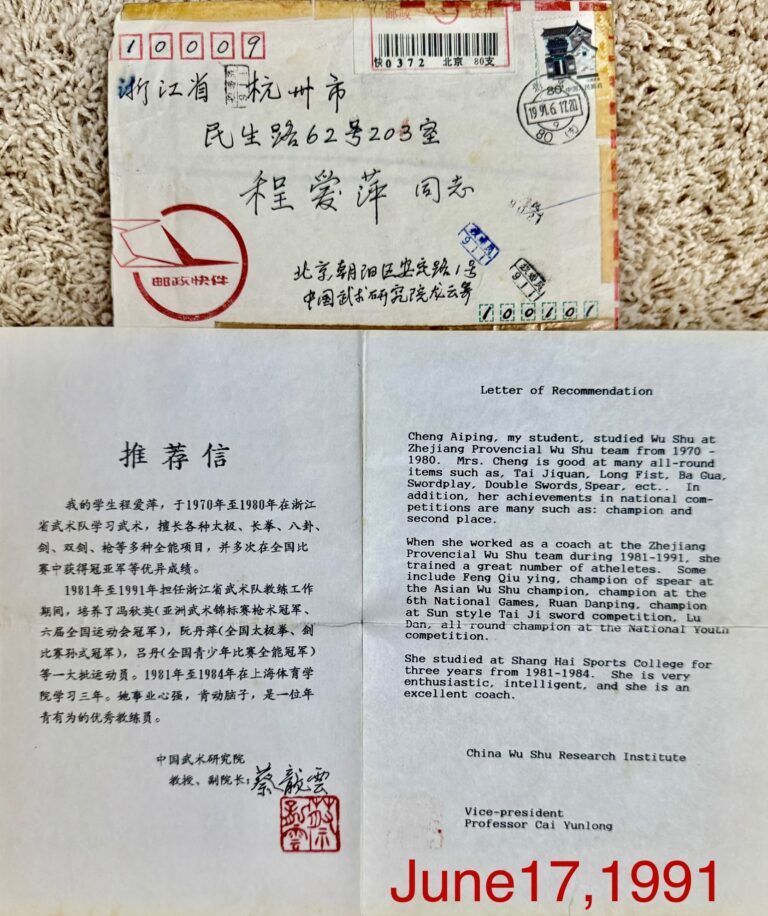 邮政快件
快0372 北京 80支
10009
浙江省杭州市
民生路62号203室
程爱萍 同志
邮政快件
北京朝阳区安定路1号
中国武术研究院龙云寄
100101
80
1991.6.17.20
80
推荐信
我的学生程爱萍，于1970年至1980年在浙江
省武术队学习武术，擅长各种太极、长拳、八卦、
剑、双剑、枪等多种全能项目，并多次在全国比
赛中获得冠亚军等优异成绩。
1981年至1991年担任浙江省武术队教练工作
期间，培养了冯秋英(亚洲武术锦标赛枪术冠军、
六届全国运动会冠军)，阮丹萍(全国太极拳、剑
比赛孙式冠军)，吕丹(全国青少年比赛全能冠军)
等一大批运动员。1981年至1984年在上海体育学
院学习三年。她事业心强，肯动脑子，是一位年
青有为的优秀教练员。
中国武术研究院
教授、副院长：蔡龍雲
Letter of Recommendation
Cheng Aiping, my student, studied Wu Shu at
Zhejiang Provencial Wu Shu team from 1970 -
1980. Mrs. Cheng is good at many all-round
items such as, Tai Jiquan, Long Fist, Ba Gua,
Swordplay, Double Swords,Spear, ect.. In
addition, her achievements in national com-
petitions are many such as: champion and
second place.
When she worked as a coach at the Zhejiang
Provencial Wu Shu team during 1981-1991, she
trained a great number of atheletes. Some
include Feng Qiu ying, champion of spear at
the Asian Wu Shu champion, champion at the
6th National Games, Ruan Danping, champion
at Sun style Tai Ji sword competition, Lu
Dan, all round champion at the National Youth
competition.
She studied at Shang Hai Sports College for
three years from 1981-1984. She is very
enthusiastic, intelligent, and she is an
excellent coach.
China Wu Shu Research Institute
Vice-president
Professor Cai Yunlong
June17,1991